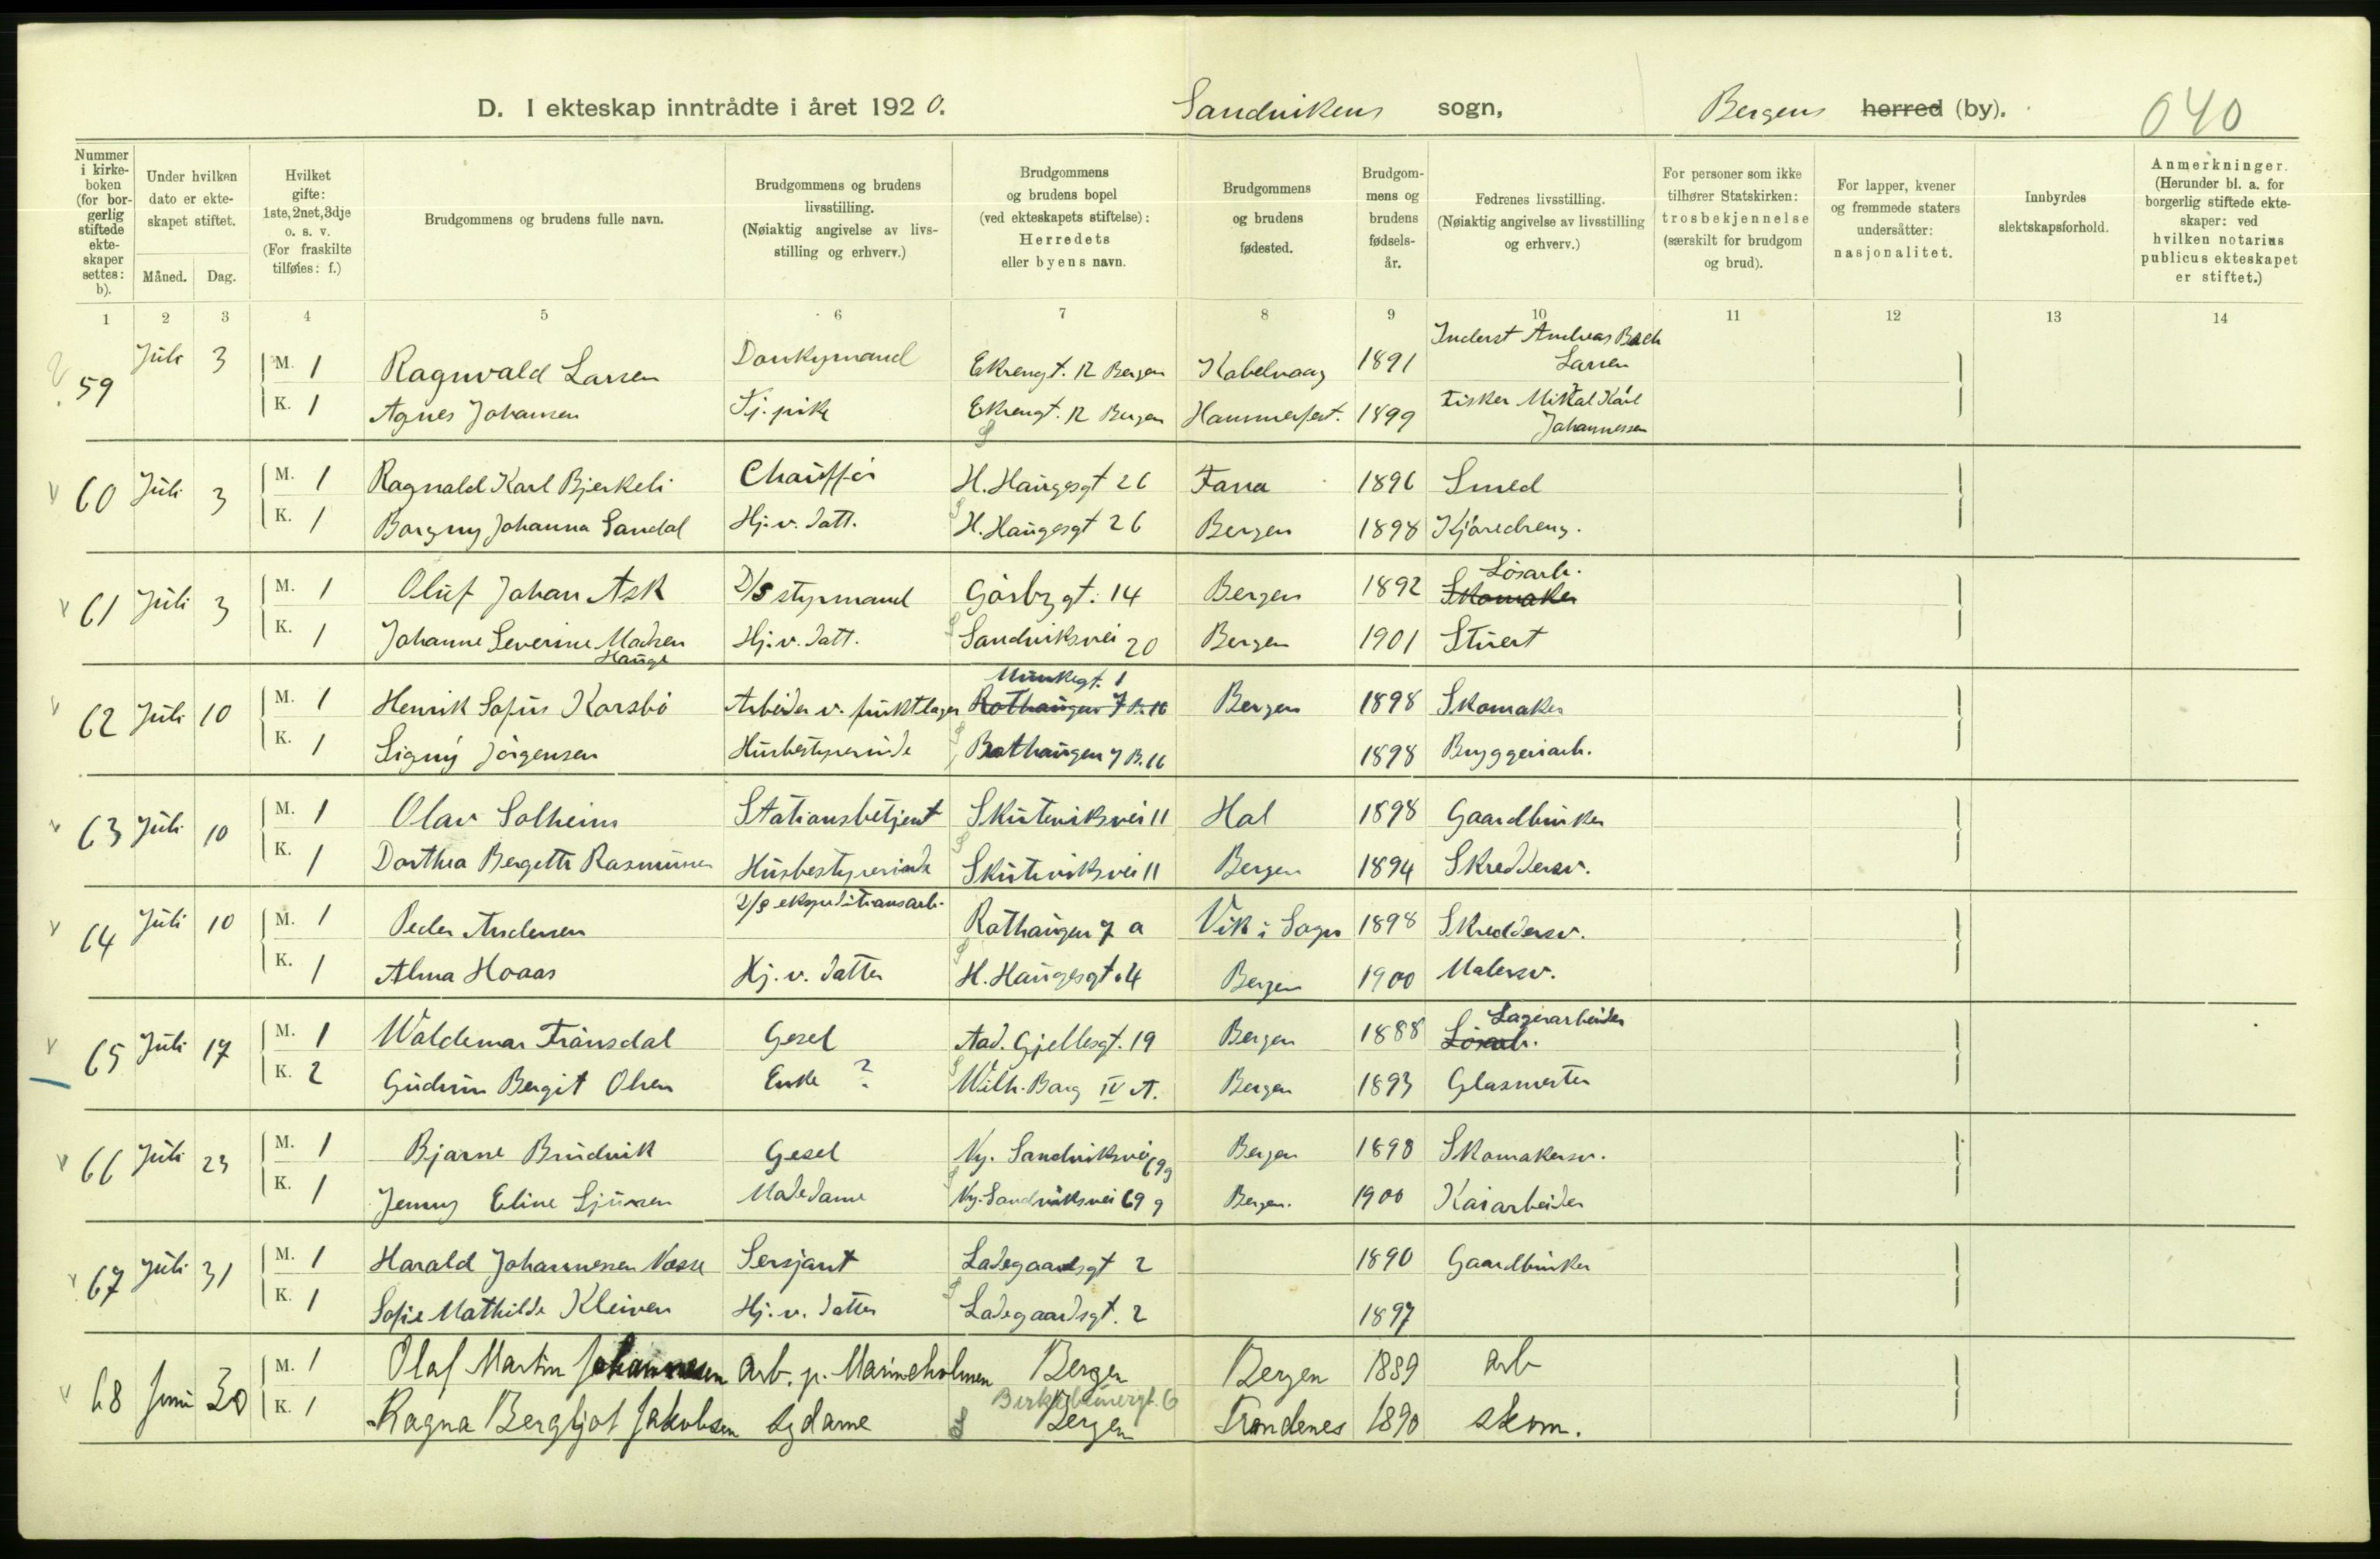 D. I ekteskap inntrådte i året 1920. Sandvikens sogn, Bergens herred (by). 040
Nummer i kirkeboken (for borgerlig stiftede ekteskaper settes: b).
Under hvilken dato er ekteskapet stiftet.
Måned. Dag.
Hvilket gifte: 1ste, 2net, 3dje o. s. v. (For fraskilte tilføies: f.)
Brudgommens og brudens fulle navn.
Brudgommens og brudens livsstilling. (Nøiaktig angivelse av livsstilling og erhverv.)
Brudgommens og brudens bopel (ved ekteskapets stiftelse): Herredets eller byens navn.
Brudgommens og brudens fødested.
Brudgommens og brudens fødselsår.
Fedrenes livsstilling. (Nøiaktig angivelse av livsstilling og erhverv.)
For personer som ikke tilhører Statskirken: trosbekjennelse (særskilt for brudgom og brud).
For lapper, kvener og fremmede staters undersåtter: nasjonalitet.
Innbyrdes slektskapsforhold.
Anmerkninger. (Herunder bl. a. for borgerlig stiftede ekteskaper: ved hvilken notarius publicus ekteskapet er stiftet.)
1 2 3 4 5 6 7 8 9 10 11 12 13 14
59 Juli 3 M. 1 Ragnvald Larsen Donkymand Ekrengt. 12 Bergen Kabelvaag 1891 Inderst Andreas Bach Larsen
K. 1 Agnes Johansen Tj. pike Ekrengt. 12 Bergen Hammerfest. 1899 Fisker Mikal Karl Johannessen
60 Juli 3 M. 1 Ragnald Karl Bjerkeli Chauffør H. Haugesgt 26 Fana 1896 Smed
K. 1 Borgny Johanna Sandal Hj. v. datt. H. Haugesgt 26 Bergen 1898 Kjøredreng.
61 Juli 3 M. 1 Oluf Johan Ask D/S styrmand Görbygt. 14 Bergen 1892 Lösarb. Skomaker
K. 1 Johanne Severine Madsen Hauge Hj. v. datt. Sandviksvei 20 Bergen 1901 Stuert
62 Juli 10 M. 1 Henrik Sofus Korsbö Arbeider v. fruktlager Munkegt. 1 Rothaugen 7 B. 16 Bergen 1898 Skomaker
K. 1 Signy Jörgensen Husbestyrerinde Rothaugen 7 B. 16 1898 Bryggeriarb.
63 Juli 10 M. 1 Olav Solheim Stationsbetjent Skuteviksvei 11 Hol 1898 Gaardbruker
K. 1 Dorthea Bergette Rasmussen Husbestyrerinde Skuteviksvei 11 Bergen 1894 Skreddersv.
64 Juli 10 M. 1 Peder Andersen D/S ekspeditionsarb. Rothaugen 7 a Vik i Sogn 1898 Skreddersv.
K. 1 Alma Hoaas Hj. v. datter H. Haugesgt. 4 Bergen 1900 Malersv.
65 Juli 17 M. 1 Waldemar Trånsdal Gesel Aad. Gjellesgt. 19 Bergen 1888 Lagerarbeider Lösarb.
K. 2 Gudrun Bergit Olsen Enke ? Wilh. Borg IV A. Bergen 1893 Glasmester
66 Juli 23 M. 1 Bjarne Brudvik Gesel Ny. Sandviksvei 69 g Bergen 1898 Skomakersv.
K. 1 Jenny Eline Sjursen Madedame Ny. Sandviksvei 69 g Bergen. 1900 Kaiarbeider
67 Juli 31 M. 1 Harald Johannessen Vosse Sersjant Ladegaardsgt 2 1890 Gaardbruker
K. 1 Sofie Mathilde Kleiven Hj. v. datter Ladegaardsgt. 2 1897
68 Juni 30 M. 1 Olaf Martin Johannessen Arb. p. Marineholmen Bergen Bergen 1889 arb
K. 1 Ragna Bergljot Jakobsen sydame Birkebeinergt. 6 Bergen Trondenes 1890 skom.